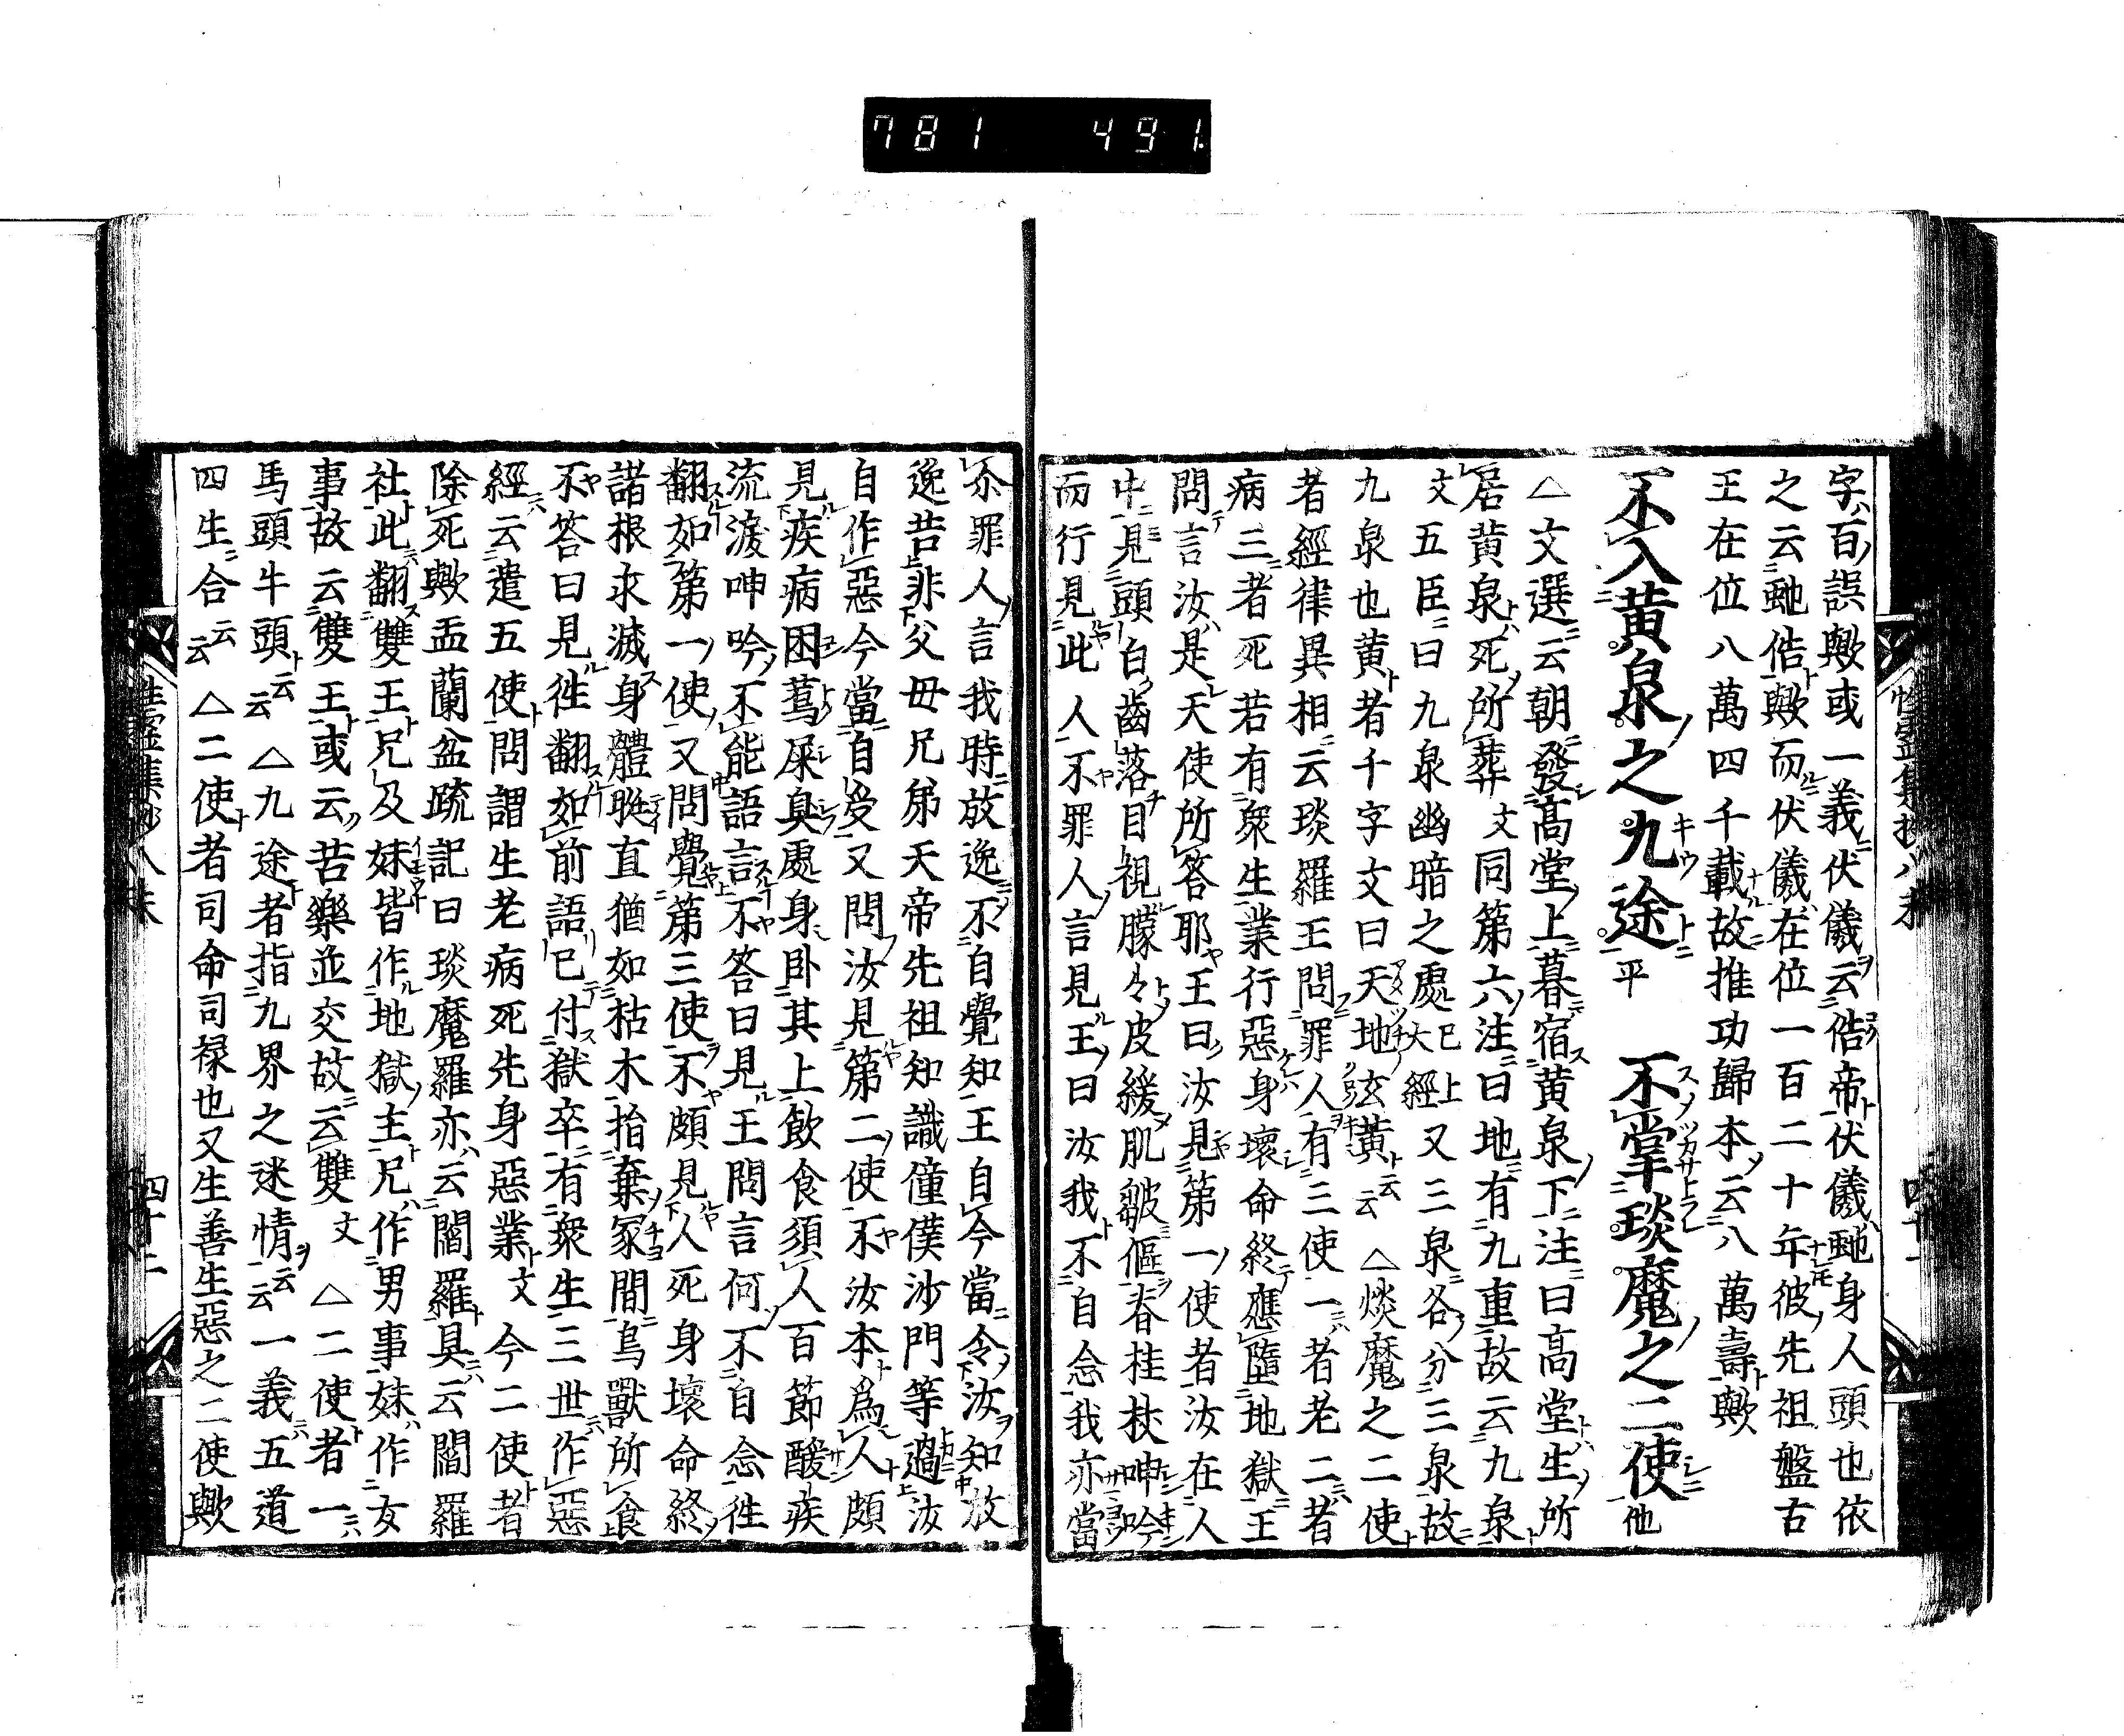 781 491
字百誤歟或一義伏儀云俈帝伏儀虵身人頭也依
之云虵俈歟而伏儀在位一百二十年彼先祖盤古
王在位八萬四千載故推功歸本云八萬壽歟
不入黄泉之九途平 不掌琰魔之二使他
△文選云朝發髙堂上暮宿黄泉下注曰高堂生所
居黄泉死所葬文同第六注曰地有九重故云九泉
文五臣曰九泉幽暗之處已上大經又三泉各分三泉故
九泉也黄者千字文曰天地玄黄云云△燄魔之二使
者經律異相云琰羅王問罪人有三使一者老二者
病三者死若有衆生業行惡身壞命終應墮地獄王
問言汝是天使所答耶王曰汝見第一使者汝在人
中見頭白齒落目視朦々皮緩肌皺傴脊桂杖呻吟
而行見此人不罪人言見王曰汝我不自念我亦當
尒罪人言我時放逸不自覺知王自今當令汝知放
逸苦非父母兄弟天帝先祖知識僮僕沙門等過汝
自作惡今當自受又問汝見第二使不汝本爲人頗
見疾病困蔦屎臭處身卧其上飲食須人百節酸疾
流淚呻吟不能語言不答曰見王問言何不自念徃
翻如第一使又問覺第三使不頗見人死身壞命終
諾根求滅身體㫋直猶如枯木捨棄冢間鳥獸所食
不答曰見徃翻如前語已付獄卒有衆生三世作惡
經云遣五使問謂生老病死先身惡業文今二使者
除死歟盂蘭盆疏記曰琰魔羅亦云閻羅具云閻羅
社此翻雙王兄及妹皆作地獄主兄作男事妹作女
事故云雙王或云苦樂並交故云雙文△二使者一
馬頭牛頭云云△九途者指九界之迷情云云一義五道
四生合云云△二使者司命司禄也又生善生惡之二使歟